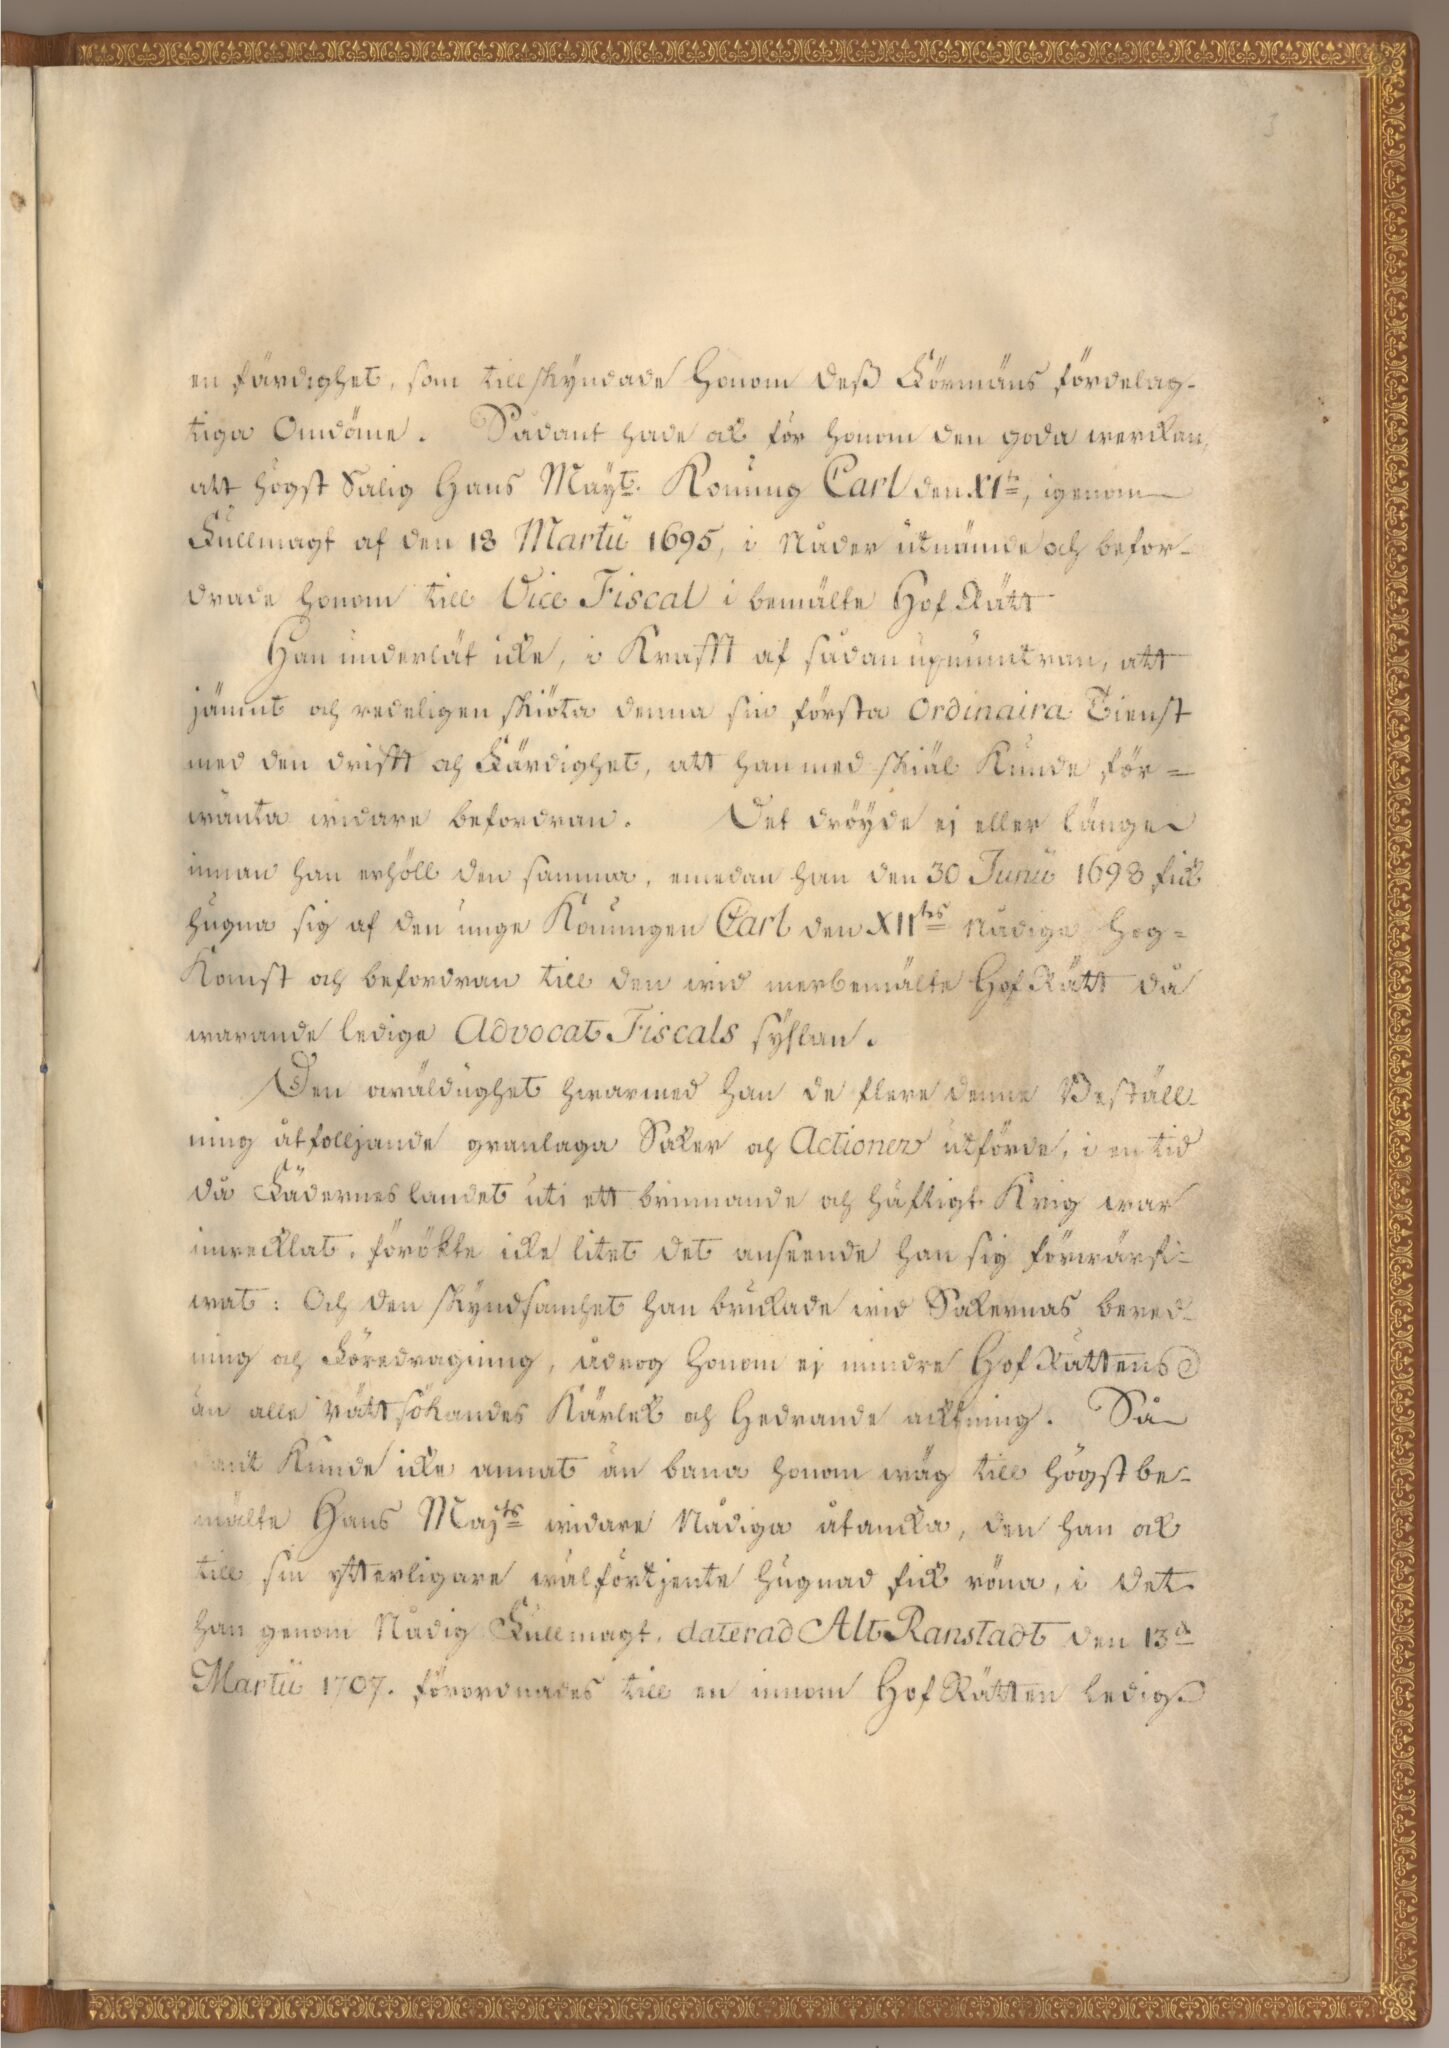 3
en färdighet, som tillskyndade Honom deß Förmäns fördelag-
tiga Omdöme. Sådant hade ok för honom den goda werckan,
att högst Salig Hans Mayt. Konung Carl den XIte, igenom
Fullmagt af den 18 Martii 1695, i Nåder utnämde och befor-
drade honom till Vice Fiscal i bemälte Hof Rätt
Han underlät icke, i Krafft af sådan upmuntran, att
jämnt och redeligen skiöta denna sin första Ordinaira Tienst
med den drifft och Färdighet, att han med skiäl Kunde för=
wänta widare befordran. Det dröyde ej eller länge
innan han erhöll den samma, emedan han den 30 Junii 1698 fick
hugna sig af den unge Konungen Carl den XIItes Nådige Hog=
Komst och befordran till den wid merbemälte Hof Rätt då
warande ledige Advocat Fiscals syslan.
Den owäldughet hwarmed han de flere denne Beställ-
ning åtfolljande granlaga Saker och Actioner utförde, i en tid
då Fäderneslandet uti ett brinnande och häftigt Krig war
inwecklat, förökte icke litet det anseende han sig förwärf-
wat: Och den skyndsamhet han bruckade wid Sakernas bered-
ning och Föredragning, ådrog Honom ej mindre Hof Rättens
än alle rättsökandes Kärlek och Hedrande acktning. Så
dant Kunde icke annat än bana honom wäg till högstbe-
mälte Hans Majts widare Nådiga åtancka, den han ok
till sin ytterligare wälförtjente hugnad fick röna, i det
han genom Nådig Fullmagt, daterad Alt Ranstadt den 13de
Martii 1707. förordnades till en innom Hof Rätten ledig